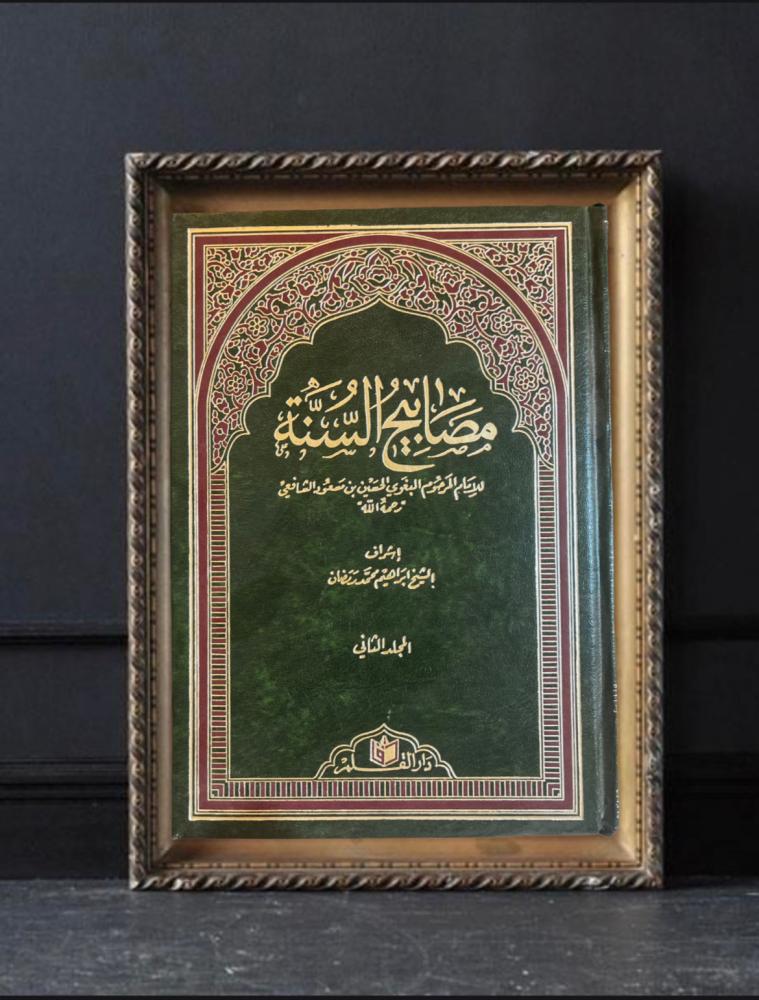 مَصَابِيحُ السُّنَّة
للإمام المرحوم البغوي الحسين بن مسعود الشافعي
"رحمهُ الله"
إشراف
الشيخ ابراهيم محمّد رمضان
المجلد الثاني
دار القلم